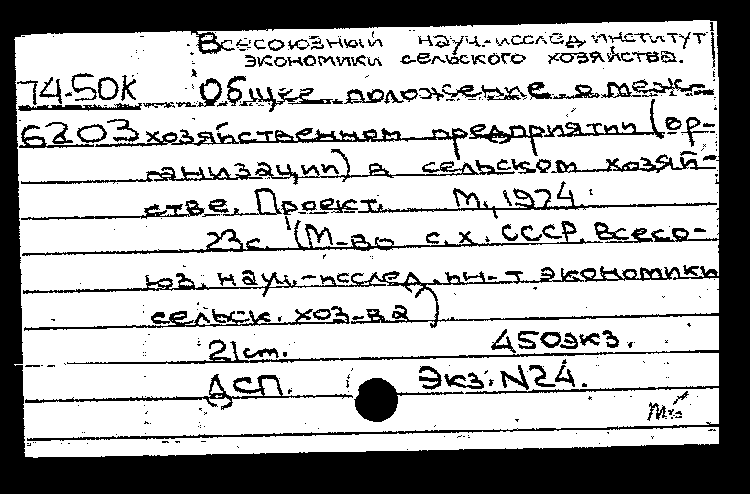 Всесоюзный науч.-исслед. институт
экономики сельского хозяйства.
74-50К Общее положение о меж-
6203 хозяйственном предприятии (ор-
ганизации) в сельском хозяй-
стве. Проект. М., 1974.
23с. (М-во с.х. СССР. Всесо-
юз. науч.-исслед. ин-т экономики
сельск. хоз-ва).
21см. 450экз.
ДСП. Экз. N24.